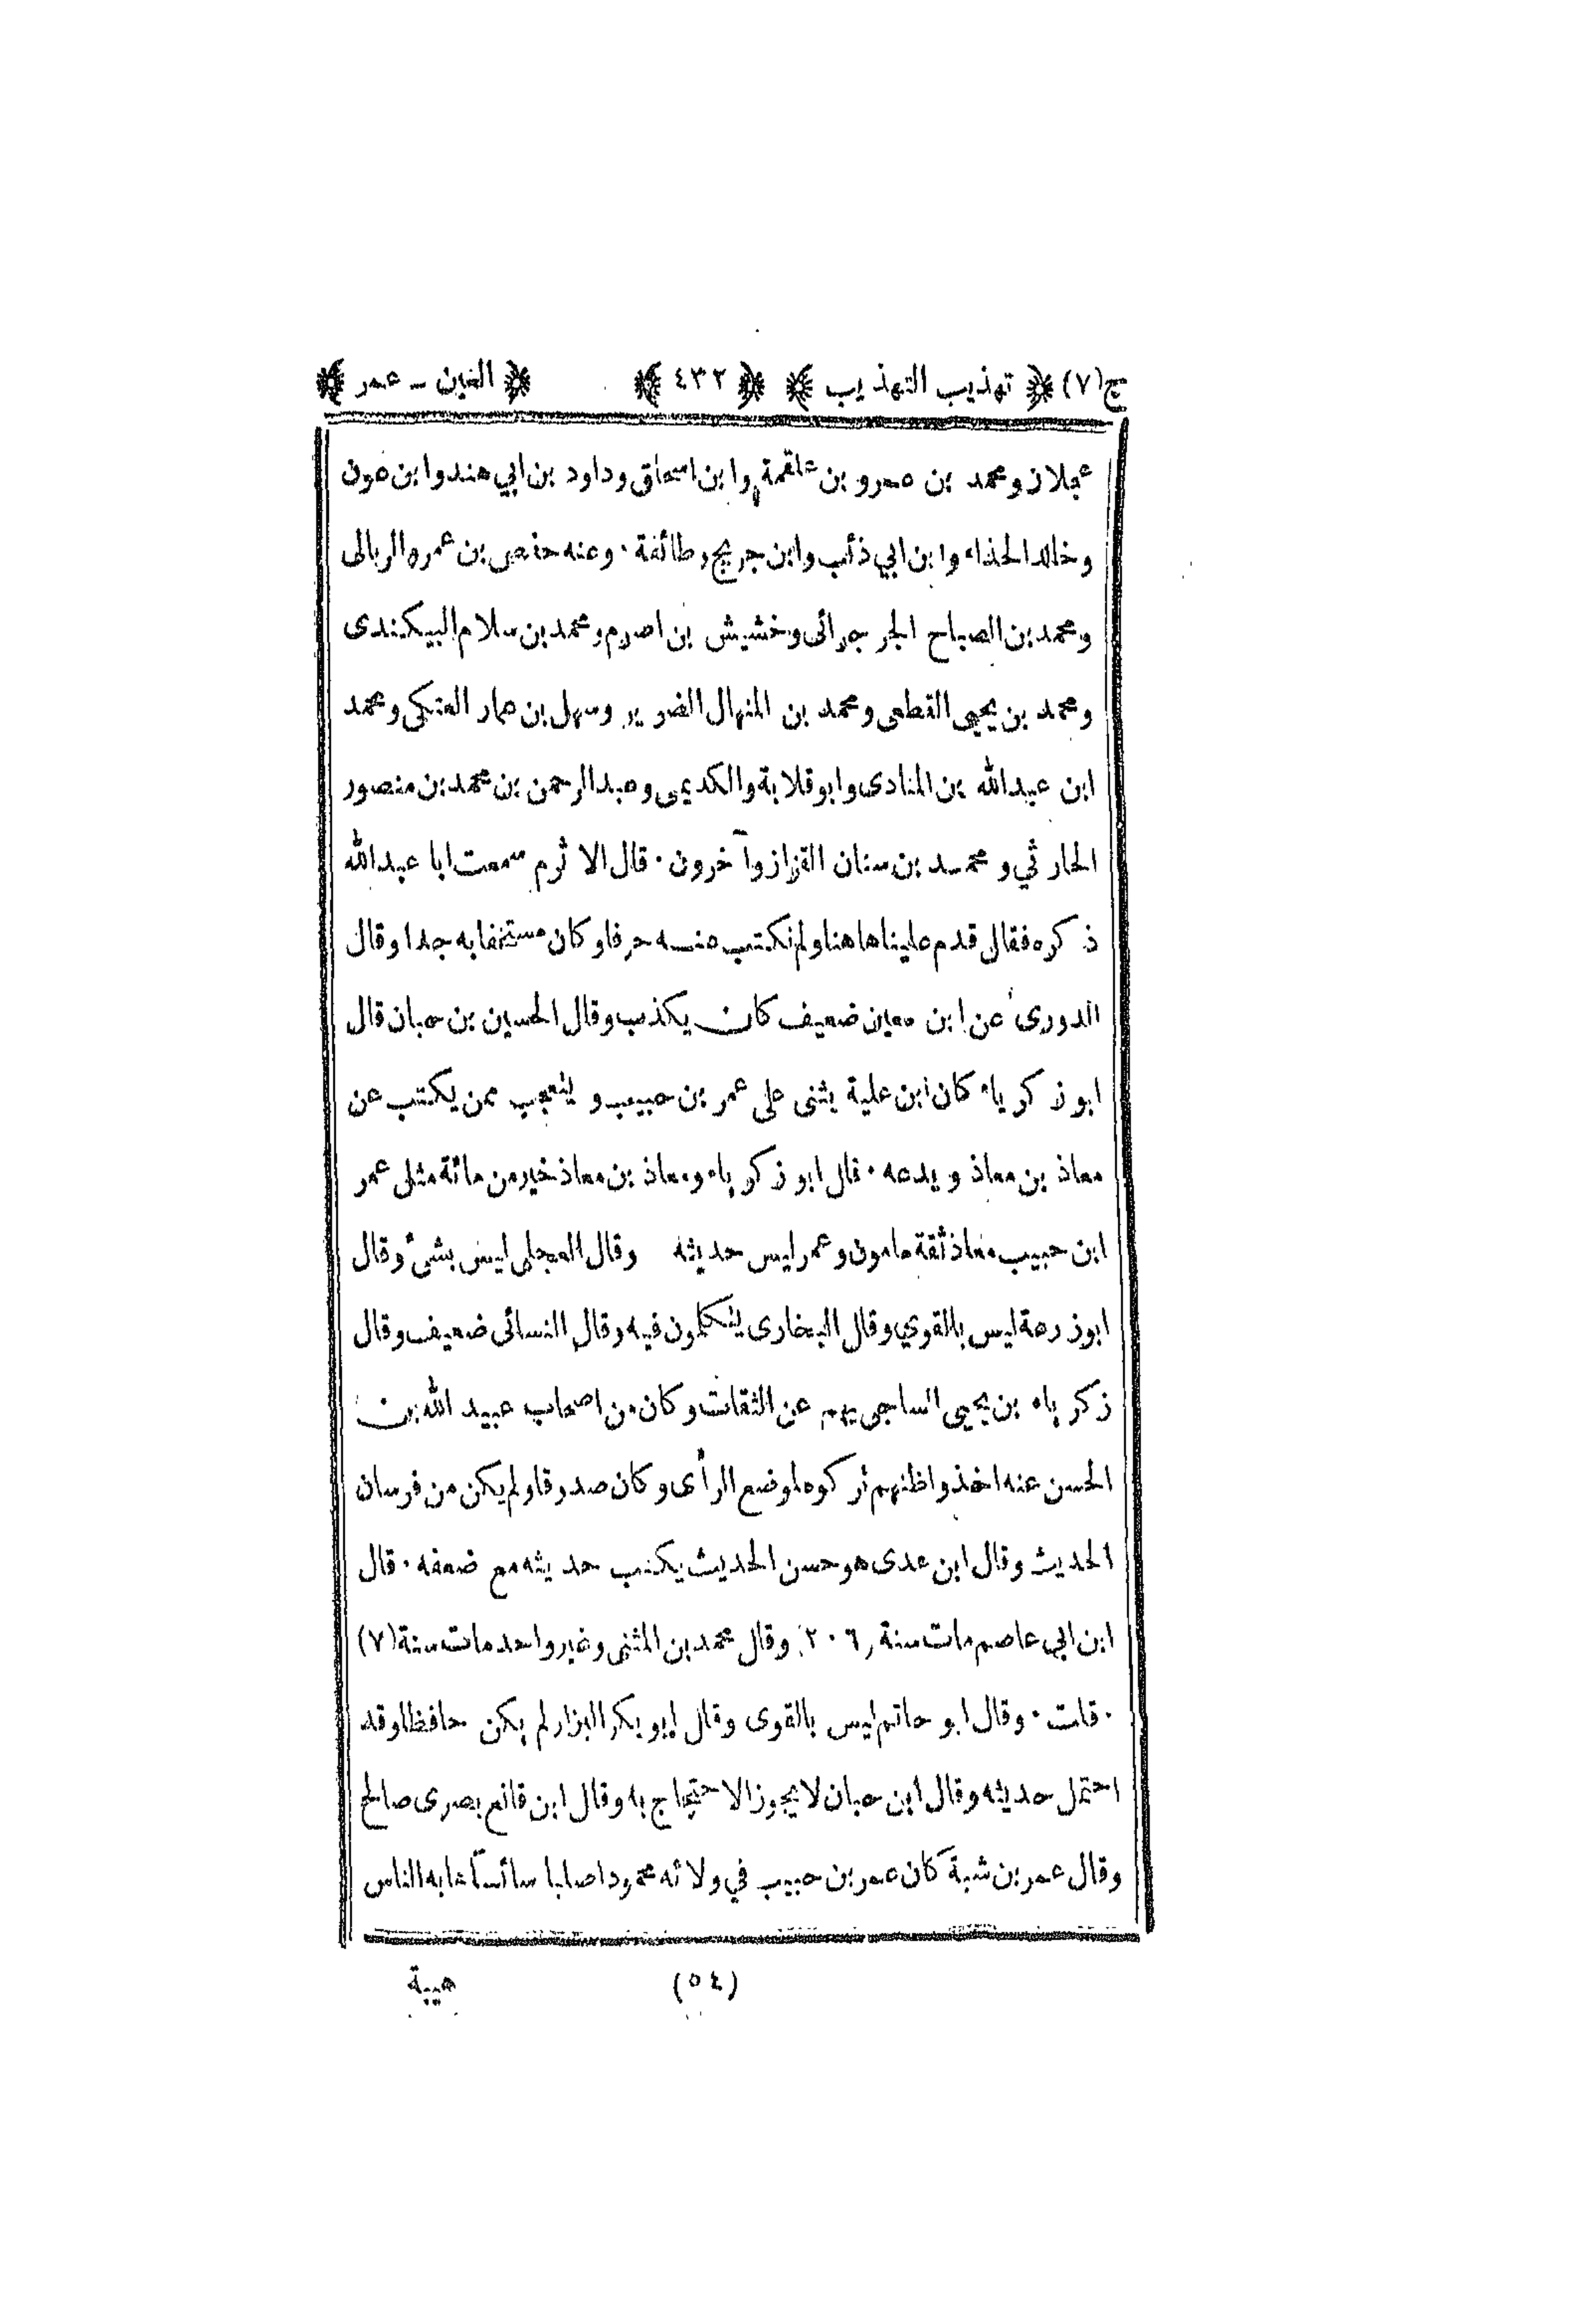 ج(٧) ﴿ تهذيب التهذيب ﴾ ﴿ ٤٣٢ ﴾ ﴿ العين ـ عمر ﴾
عجلان ومحمد بن عمرو بن علقمة وابن اسحاق وداود بن ابي هند وابن عون
وخالد الحذاء وابن ابي ذئب وابن جريج وطائفة ٠ وعنه حفص بن عمرو الربالى
ومحمد بن الصباح الجرجرائى وخشيش بن اصرم ومحمد بن سلام البيكندى
ومحمد بن يحيى القطعى ومحمد بن المنهال الضرير وسهل بن عمار العتكى ومحمد
ابن عبيد الله بن المنادى وابو قلابة والكديمى وعبد الرحمن بن محمد بن منصور
الحارثي ومحمد بن سنان القزاز وآخرون ٠ قال الاثرم سمعت ابا عبد الله
ذكره فقال قدم علينا هاهنا ولم نكتب عنه حرفا وكان مستخفا به جدا وقال
الدورى عن ابن معين ضعيف كان يكذب وقال الحسين بن حبان قال
ابو زكرياء كان ابن علية يثنى على عمر بن حبيب ويتعجب ممن يكتب عن
معاذ بن معاذ ويدعه ٠ قال ابو زكرياء ومعاذ بن معاذ خير من مائة مثلى عمر
ابن حبيب معاذ ثقة مامون وعمر ليس حديثه وقال العجلى ليس بشئ وقال
ابو زرعة ليس بالقوي وقال البخارى يتكلمون فيه وقال النسائى ضعيف وقال
زكرياء بن يحيى الساجى يهم عن الثقات وكان من اصحاب عبيد الله بن
الحسن عنه اخذ واظنهم تركوه لموضع الرأى وكان صدوقا ولم يكن من فرسان
الحديث وقال ابن عدى هو حسن الحديث يكتب حديثه مع ضعفه ٠ قال
ابن ابي عاصم مات سنة ٢٠٦ وقال محمد بن المثنى وغير واحد مات سنة (٧)
٠ قلت ٠ وقال ابو حاتم ليس بالقوى وقال ابو بكر البزار لم يكن حافظا وقد
احتمل حديثه وقال ابن حبان لا يجوز الاحتجاج به وقال ابن قانع بصرى صالح
وقال عمر بن شبة كان عمر بن حبيب في ولائه محمودا صلبا سائسا هابه الناس
(٥٤) هيبة